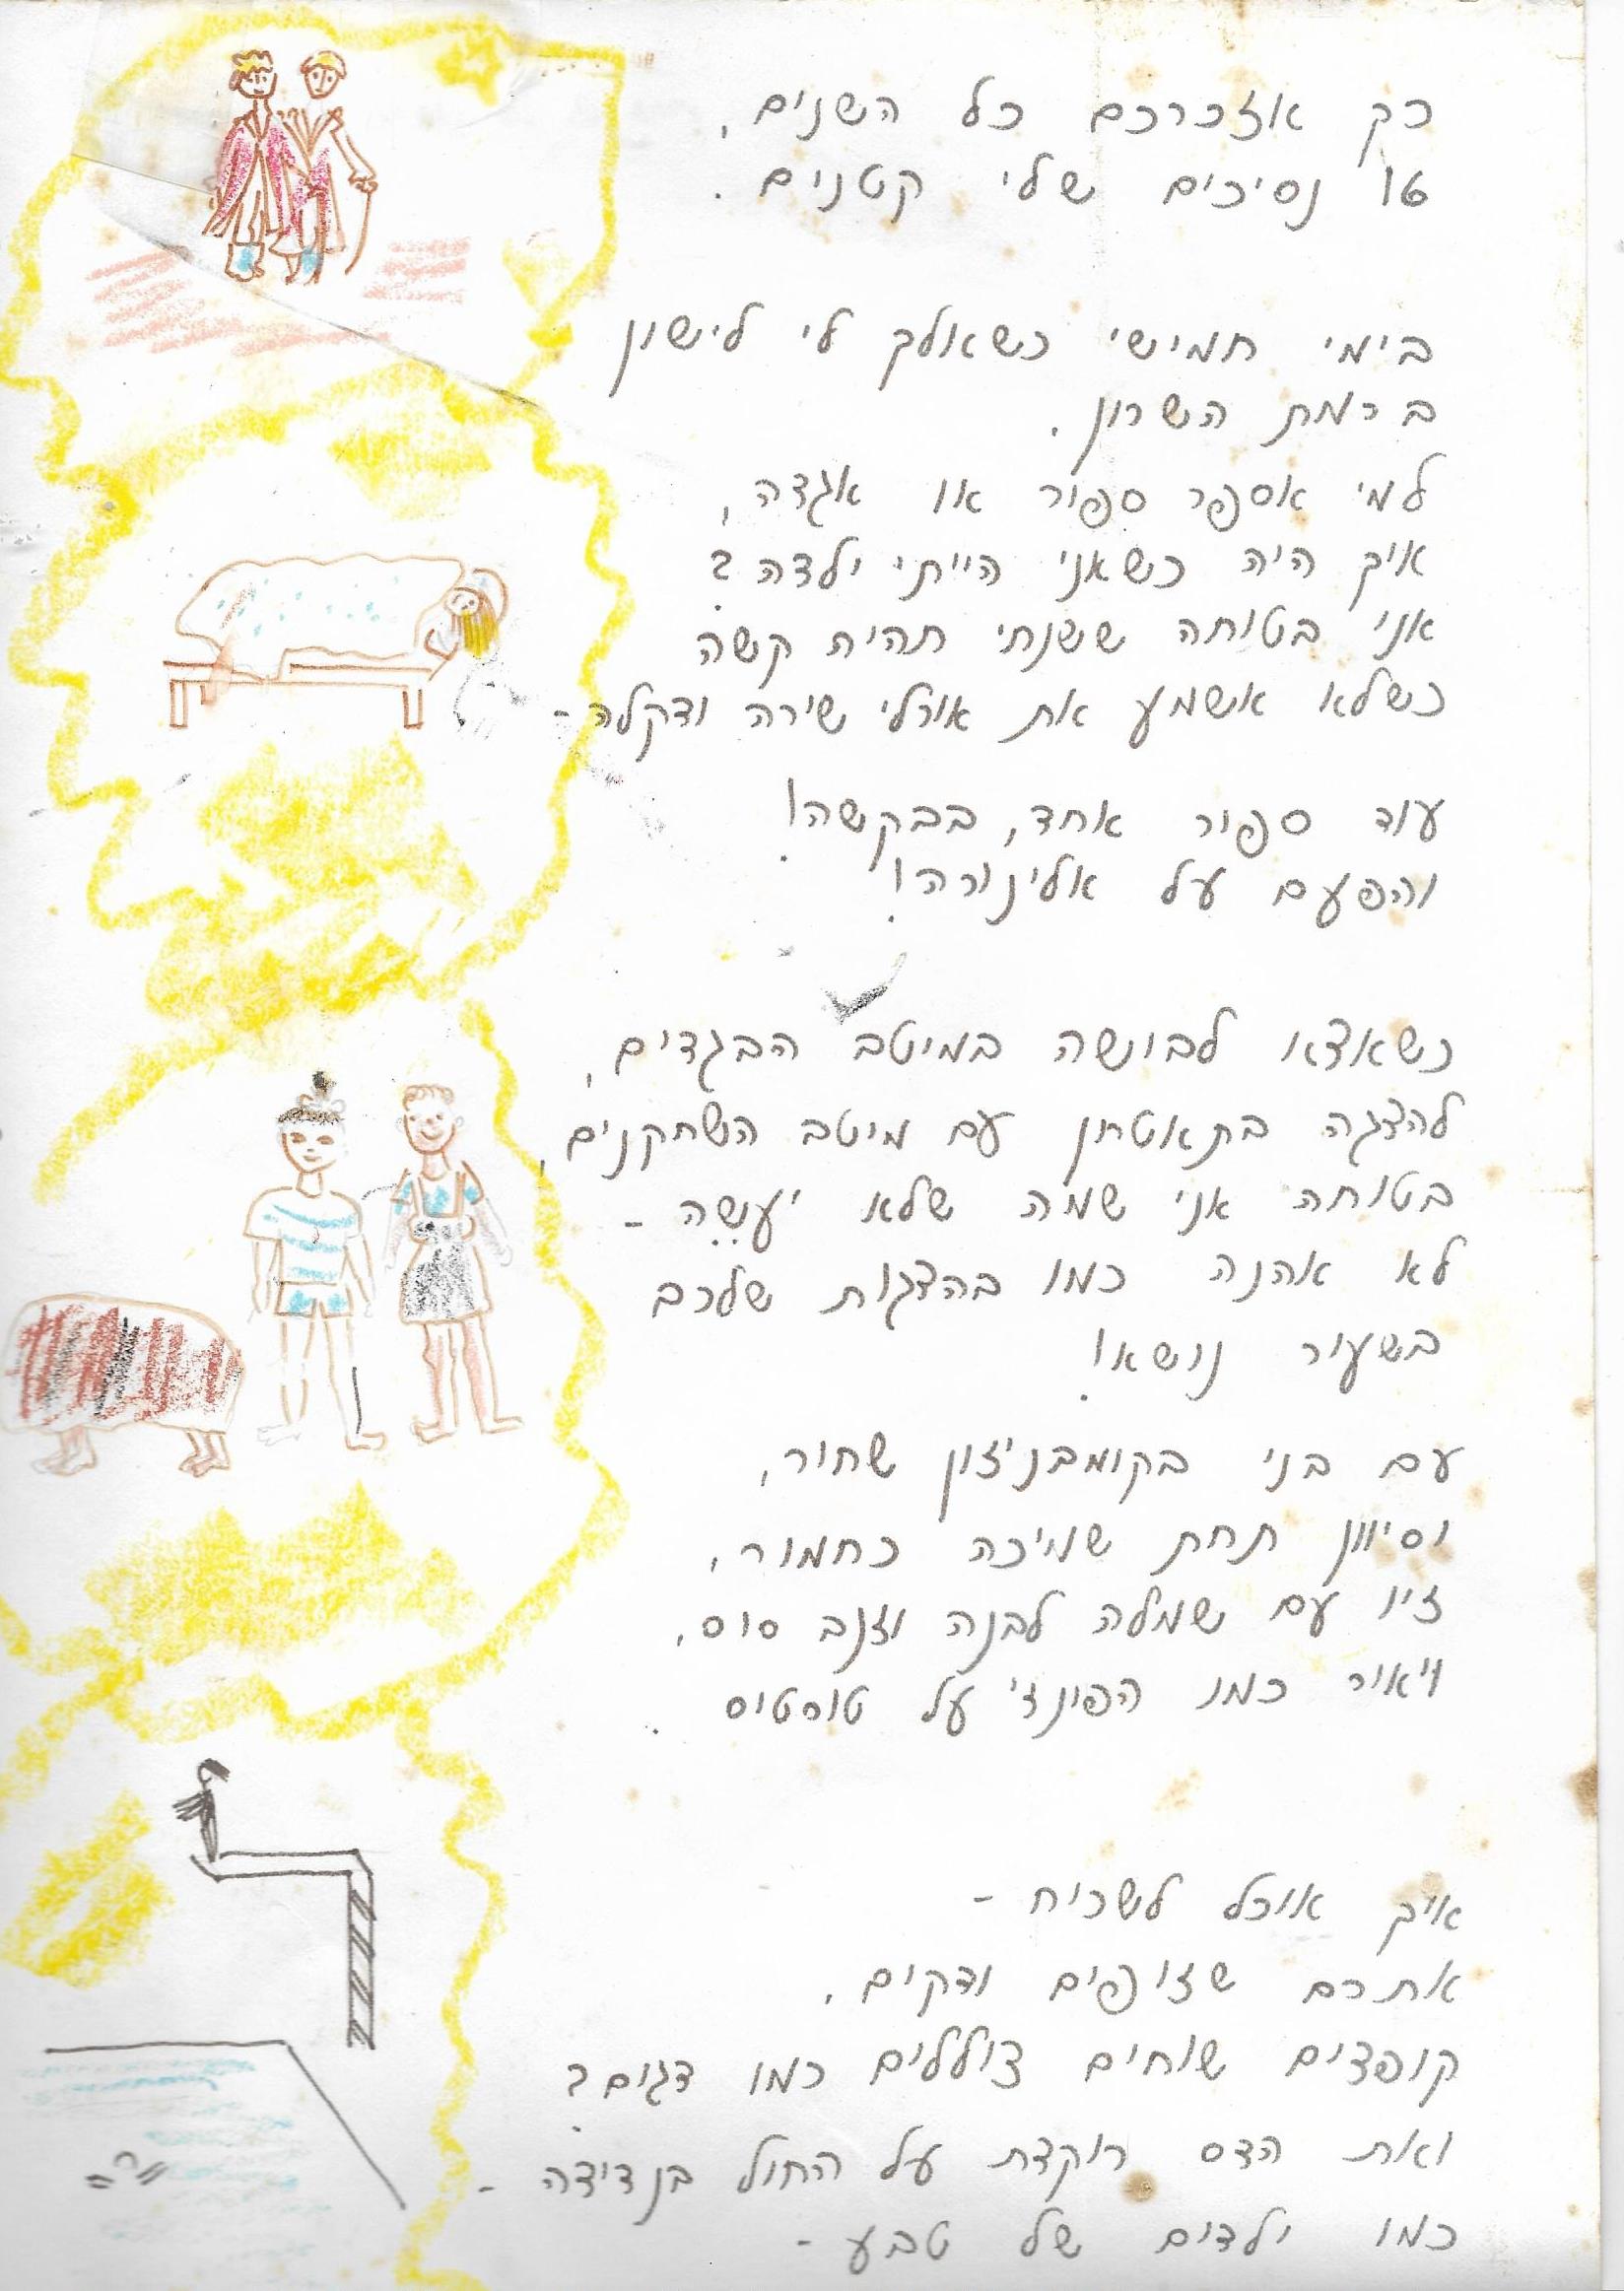 כך אזכרכם כל השנים,
16 נסיכים שלי קטנים.
בימי חמישי כשאלך לי לישון
ברמת השרון.
למי אספר ספור או אגדה,
איך היה כשאני הייתי ילדה?
אני בטוחה ששנתי תהיה קשה
כשלא אשמע את אורלי שירה ודקלה -
עוד ספור אחד, בבקשה!
והפעם על אלינורה!
כשאצא לבושה במיטב הבגדים,
להצגה בתאטרון עם מיטב השחקנים,
בטוחה אני שמה שלא יעשה -
לא אהנה כמו בהצגות שלכם
בשעור נושא!
עם בני בקומבניזון שחור,
וסיוון תחת שמיכה כחמור,
זיו עם שמלה לבנה וזנב סוס,
ויאור כמו הפינג'י על טורטוס.
איך אוכל לשכוח -
אתכם שזופים ודקים,
קופצים שוחים צוללים כמו דגים?
ואת הדס רוקדת על החול בנדידה -
כמו ילדים של טבע -